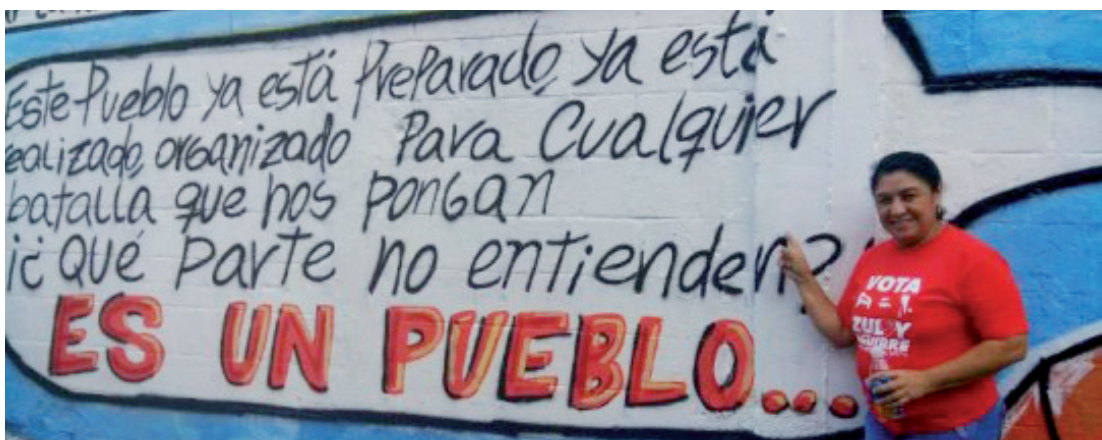 Este Pueblo ya está Preparado, ya está
realizado, organizado Para Cualquier
batalla que nos pongan
¡¿Qué Parte no entienden?!
ES UN PUEBLO...
VOTA